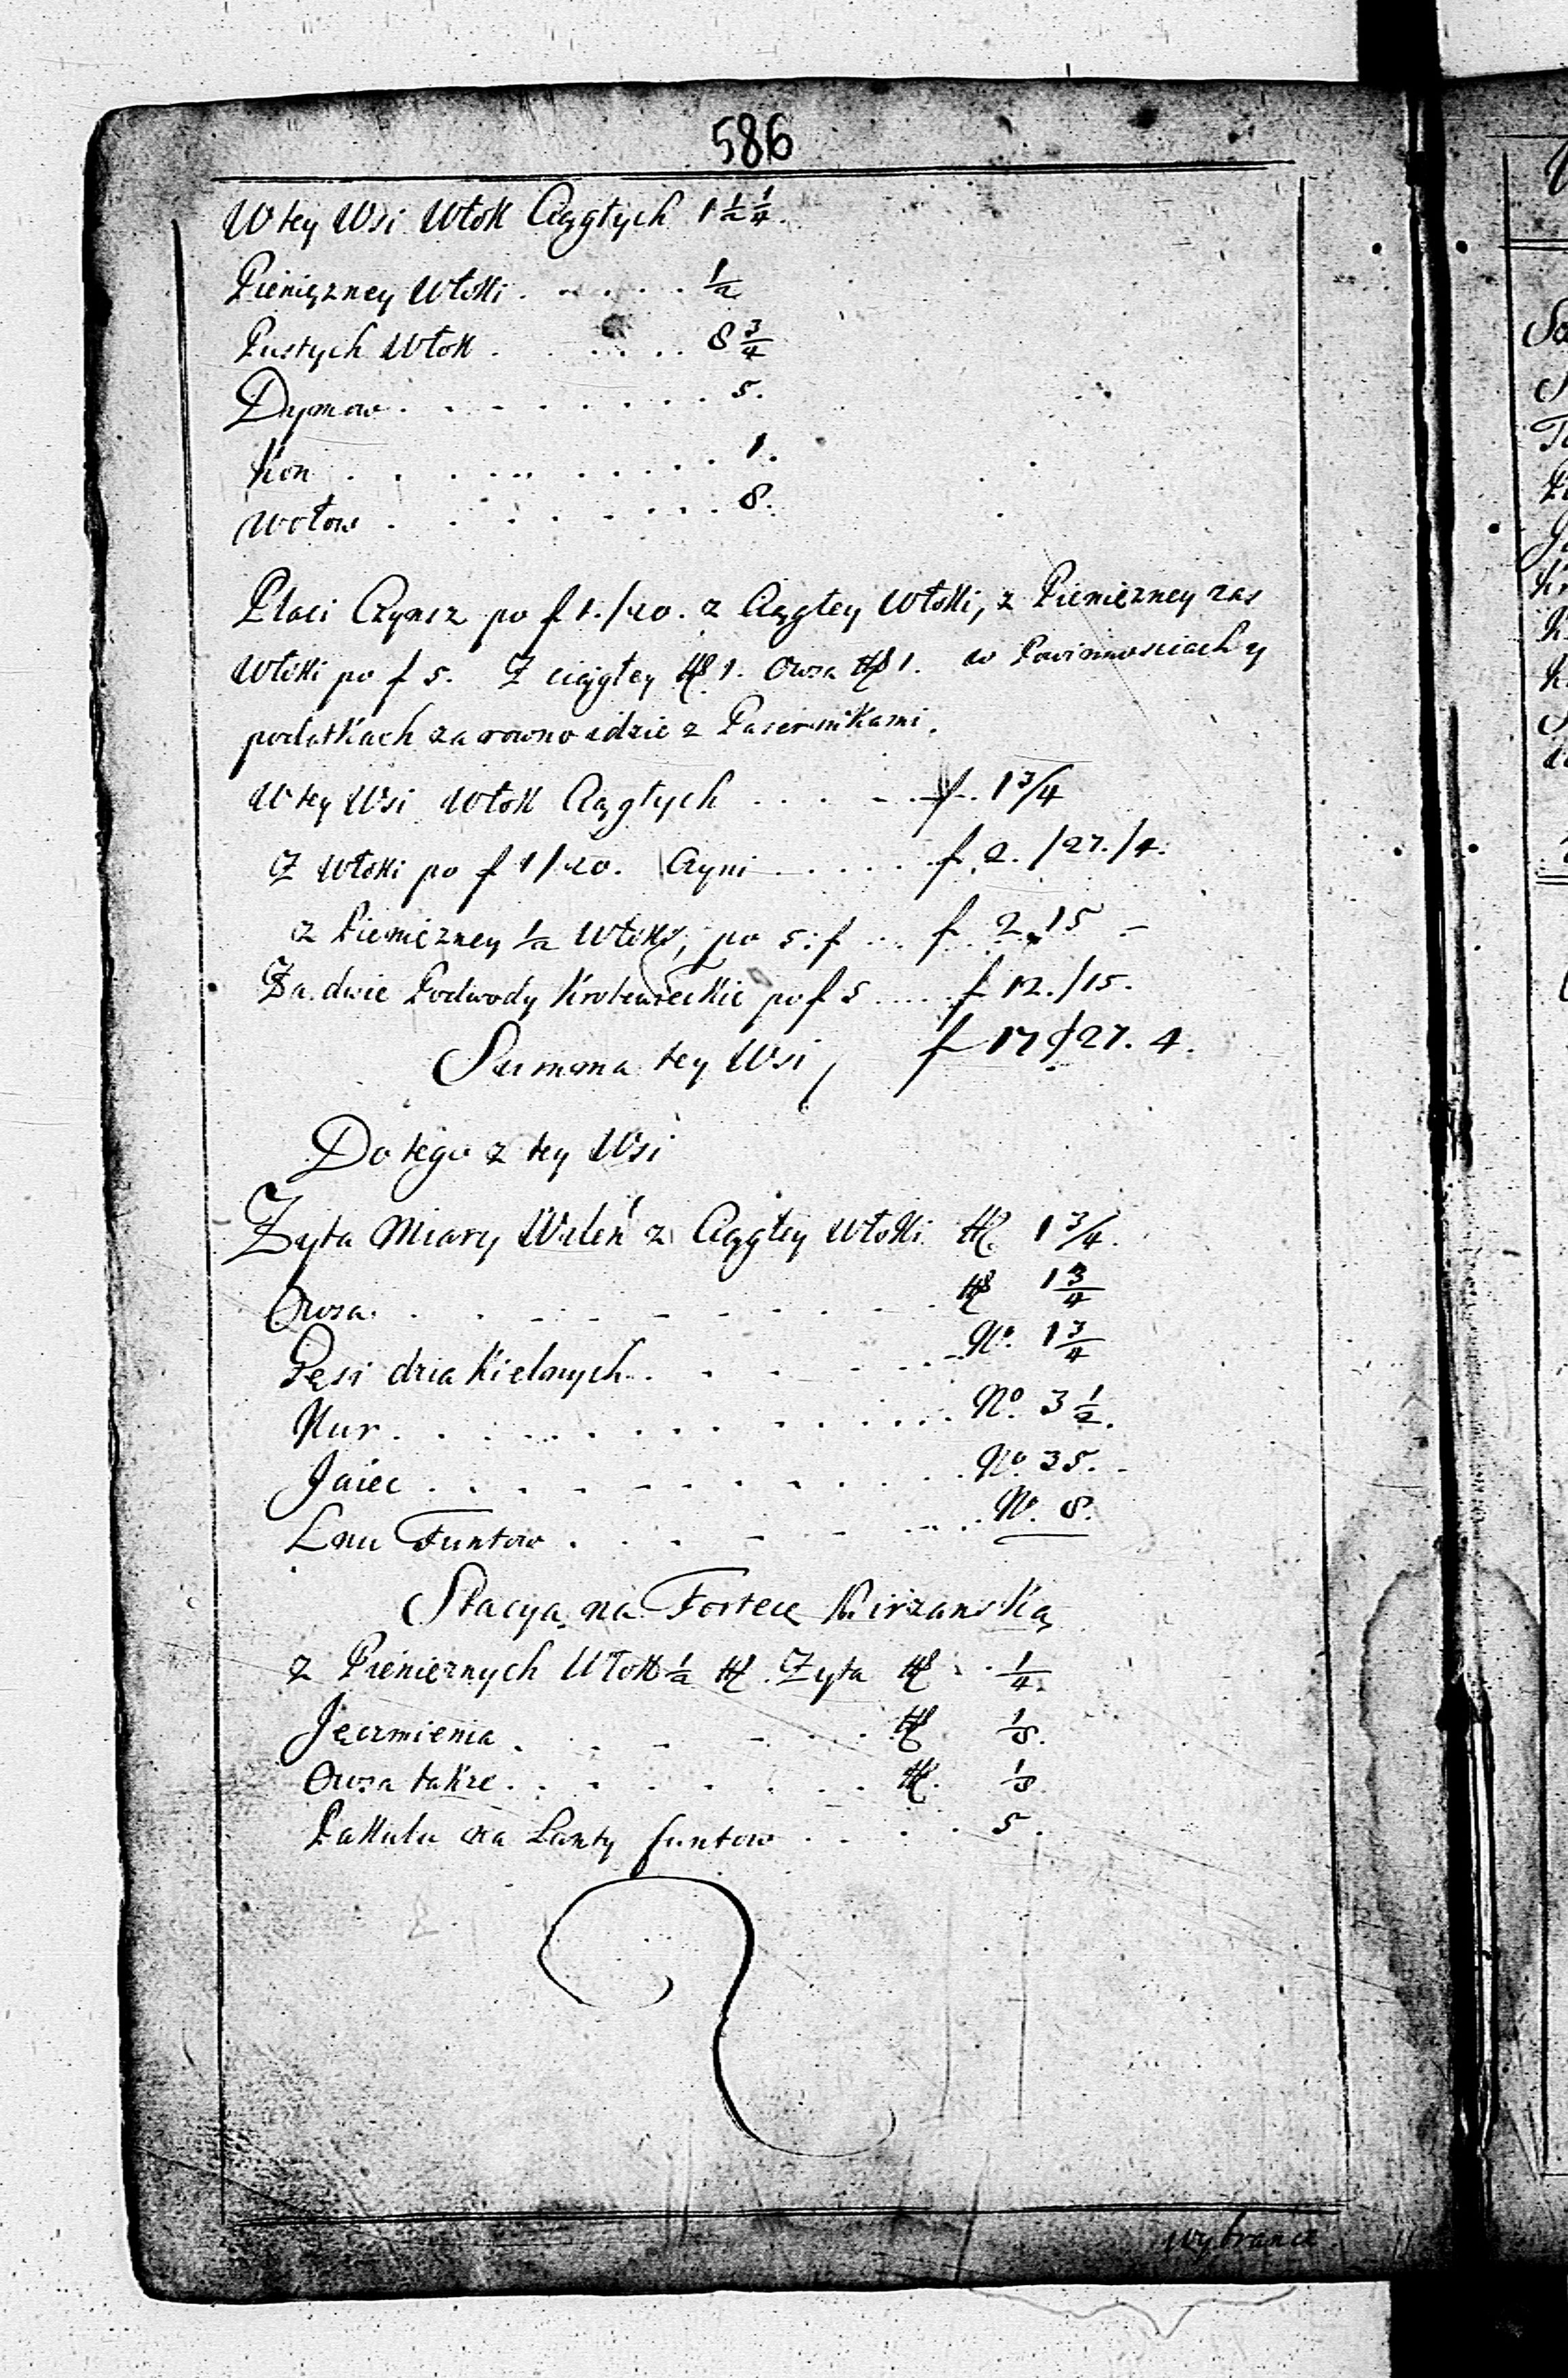 586
W tey Wsi Włok Ciągłych 1 1/2 1/4.
Pieniężney Włoki . . . . . . 1/2
Pustych Włok . . . . . . 8 3/4
Dymow . . . . . . . . 5.
Kon . . . . . . . . . . 1.
Wołow . . . . . . . . 8.
Płaci Czynsz po f 1./20. z Ciągłey Włoki, z Pienięzney zas
Włoki po f 5. Z ciągłey 1. Owsa 1. w Powinnosciach y
podatkach za rowno idzie z Pasiernikami.
W tey Wsi Włok Ciągłych . . . . . f. 1 3/4
Z Włoki po f 1/20. Czyni . . . . . f. 2./27./4.
z Pienięzney 1/2 Włoki, po 5: f ... f 2. 15 –
Za dwie Podwody Krolewieckie po f 5 ..... f 12./15.
Summa tey Wsi, f 17/27. 4.
Do tego z tey Wsi
Zyta Miary Wilen z Ciągłey Włoki 1 3/4.
Owsa. . . . . . . . . . 1 3/4
Gęsi dziakielnych . . . . . . No. 1 3/4
Kur . . . . . . . . . . . No. 3 1/2.
Jaiec . . . . . . . . . . No. 35.
Lnu Funtow . . . . . . . No. 8.
Stacya na Fortecę Birzanską
z Pienięznych Włok 1/2 Zyta 1/4.
Jęczmienia . . . . . . . 1/8.
Owsa takze . . . . . . . 1/8
Pakułu na Lanty funtow . . . . 5.
wybrancz